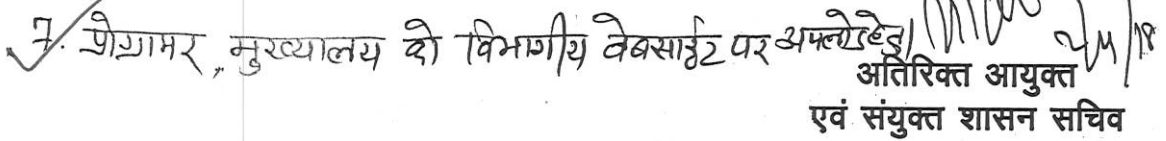 7. प्रोग्रामर, मुख्यालय को विभागीय वेबसाईट पर अपलोड हेतु।
अतिरिक्त आयुक्त
एवं संयुक्त शासन सचिव